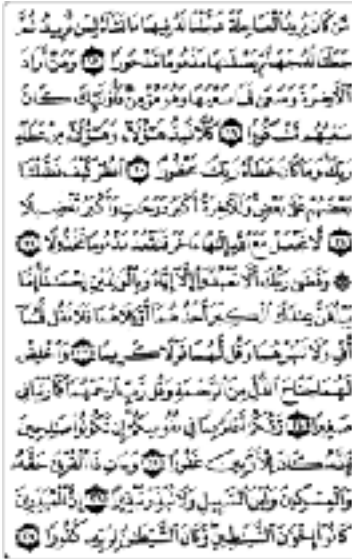 مَّن كَانَ يُرِيدُ ٱلْعَاجِلَةَ عَجَّلْنَا لَهُۥ فِيهَا مَا نَشَآءُ لِمَن نُّرِيدُ ثُمَّ
جَعَلْنَا لَهُۥ جَهَنَّمَ يَصْلَىٰهَا مَذْمُومًا مَّدْحُورًا ١٨ وَمَنْ أَرَادَ
ٱلْأَخِرَةَ وَسَعَىٰ لَهَا سَعْيَهَا وَهُوَ مُؤْمِنٌ فَأُو۟لَٰٓئِكَ كَانَ
سَعْيُهُم مَّشْكُورًا ١٩ كُلًّا نُّمِدُّ هَٰٓؤُلَآءِ وَهَٰٓؤُلَآءِ مِنْ عَطَآءِ
رَبِّكَ وَمَا كَانَ عَطَآءُ رَبِّكَ مَحْظُورًا ٢٠ ٱنظُرْ كَيْفَ فَضَّلْنَا
بَعْضَهُمْ عَلَىٰ بَعْضٍ وَلَلْأَخِرَةُ أَكْبَرُ دَرَجَٰتٍ وَأَكْبَرُ تَفْضِيلًا
٢١ لَّا تَجْعَلْ مَعَ ٱللَّهِ إِلَٰهًا ءَاخَرَ فَتَقْعُدَ مَذْمُومًا مَّخْذُولًا ٢٢
۞ وَقَضَىٰ رَبُّكَ أَلَّا تَعْبُدُوٓا۟ إِلَّآ إِيَّاهُ وَبِٱلْوَٰلِدَيْنِ إِحْسَٰنًا إِمَّا
يَبْلُغَنَّ عِندَكَ ٱلْكِبَرَ أَحَدُهُمَآ أَوْ كِلَاهُمَا فَلَا تَقُل لَّهُمَآ
أُفٍّ وَلَا تَنْهَرْهُمَا وَقُل لَّهُمَا قَوْلًا كَرِيمًا ٢٣ وَٱخْفِضْ
لَهُمَا جَنَاحَ ٱلذُّلِّ مِنَ ٱلرَّحْمَةِ وَقُل رَّبِّ ٱرْحَمْهُمَا كَمَا رَبَّيَانِى
صَغِيرًا ٢٤ رَّبُّكُمْ أَعْلَمُ بِمَا فِى نُفُوسِكُمْ إِن تَكُونُوا۟ صَٰلِحِينَ
فَإِنَّهُۥ كَانَ لِلْأَوَّٰبِينَ غَفُورًا ٢٥ وَءَاتِ ذَا ٱلْقُرْبَىٰ حَقَّهُۥ
وَٱلْمِسْكِينَ وَٱبْنَ ٱلسَّبِيلِ وَلَا تُبَذِّرْ تَبْذِيرًا ٢٦ إِنَّ ٱلْمُبَذِّرِينَ
كَانُوٓا۟ إِخْوَٰنَ ٱلشَّيَٰطِينِ وَكَانَ ٱلشَّيْطَٰنُ لِرَبِّهِۦ كَفُورًا ٢٧